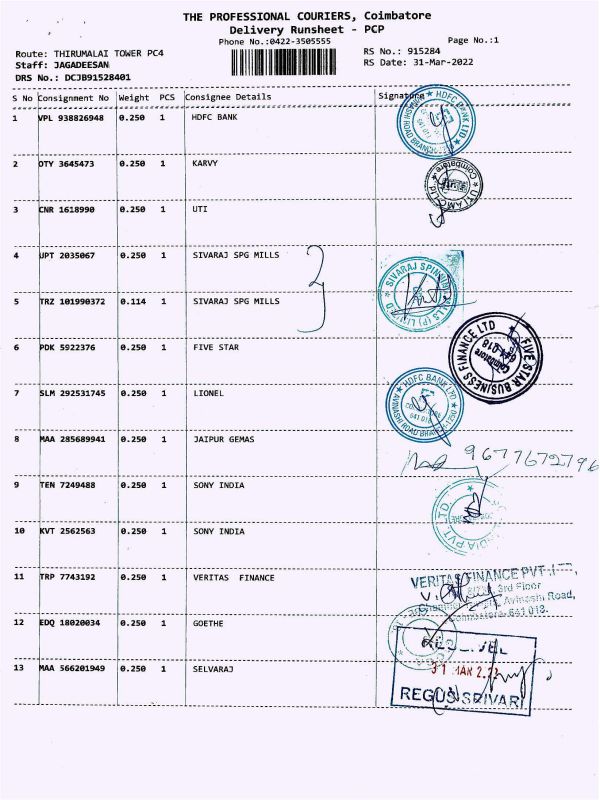 THE PROFESSIONAL COURIERS, Coimbatore
Delivery Runsheet - PCP
Phone No.:0422-3505555
Page No.:1
Route: THIRUMALAI TOWER PC4
RS No.: 915284
Staff: JAGADEESAN
RS Date: 31-Mar-2022
DRS No.: DCJB91528401
S No Consignment No Weight PCS Consignee Details Signature
1 VPL 938826948 0.250 1 HDFC BANK
HDFC BANK LTD
641 018
2 DTY 3645473 0.250 1 KARVY
Coimbatore
3 CNR 1618990 0.250 1 UTI
4 JPT 2035067 0.250 1 SIVARAJ SPG MILLS
SIVARAJ SPINNING MILLS (P) LIMITED
5 TRZ 101990372 0.114 1 SIVARAJ SPG MILLS
6 PDK 5922376 0.250 1 FIVE STAR
FIVE STAR BUSINESS FINANCE LTD
Coimbatore
641 018
7 SLM 292531745 0.250 1 LIONEL
HDFC BANK LTD
AVINASHI ROAD BRANCH-1250
641 018
8 MAA 285689941 0.250 1 JAIPUR GEMAS
9677672796
9 TEN 7249488 0.250 1 SONY INDIA
INDIA PVT. LTD.
10 KVT 2562563 0.250 1 SONY INDIA
11 TRP 7743192 0.250 1 VERITAS FINANCE
VERITAS FINANCE PVT. LTD.
3rd Floor
Avinashi Road,
Coimbatore. 641 018.
12 EDQ 18020034 0.250 1 GOETHE
13 MAA 566201949 0.250 1 SELVARAJ
RECEIVED
31 MAR 2022
REGUS SRIVARI